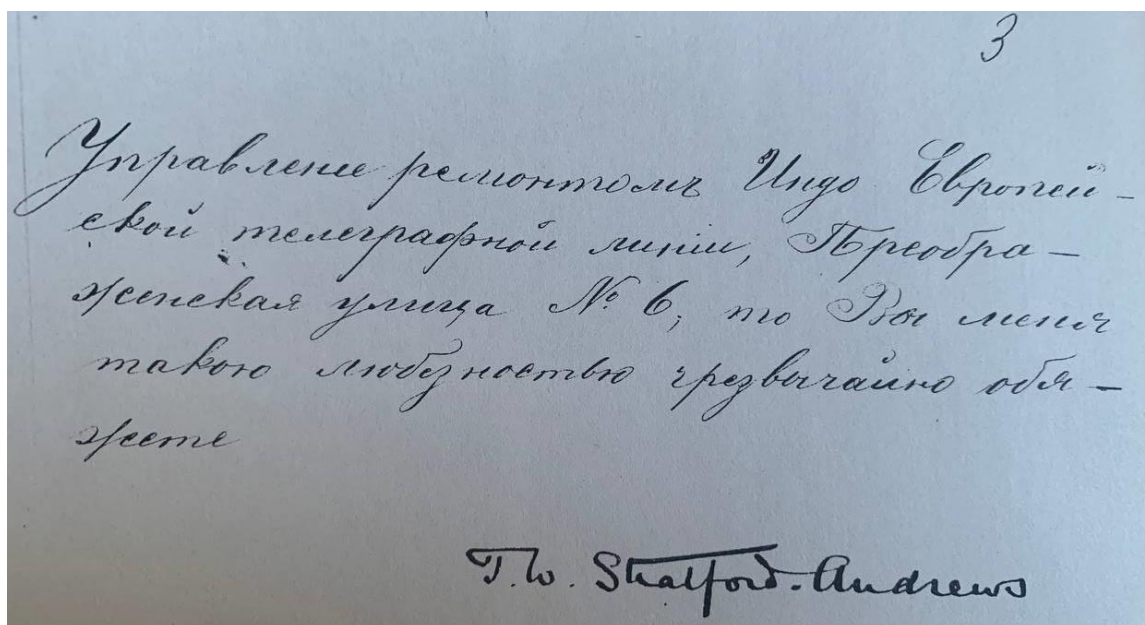 3
Управленіе ремонтомъ Индо Европей-
ской телеграфной линіи, Преобра-
женская улица № 6, то Вы меня
такою любезностью чрезвычайно обя-
жете
T. W. Stratford-Andrews